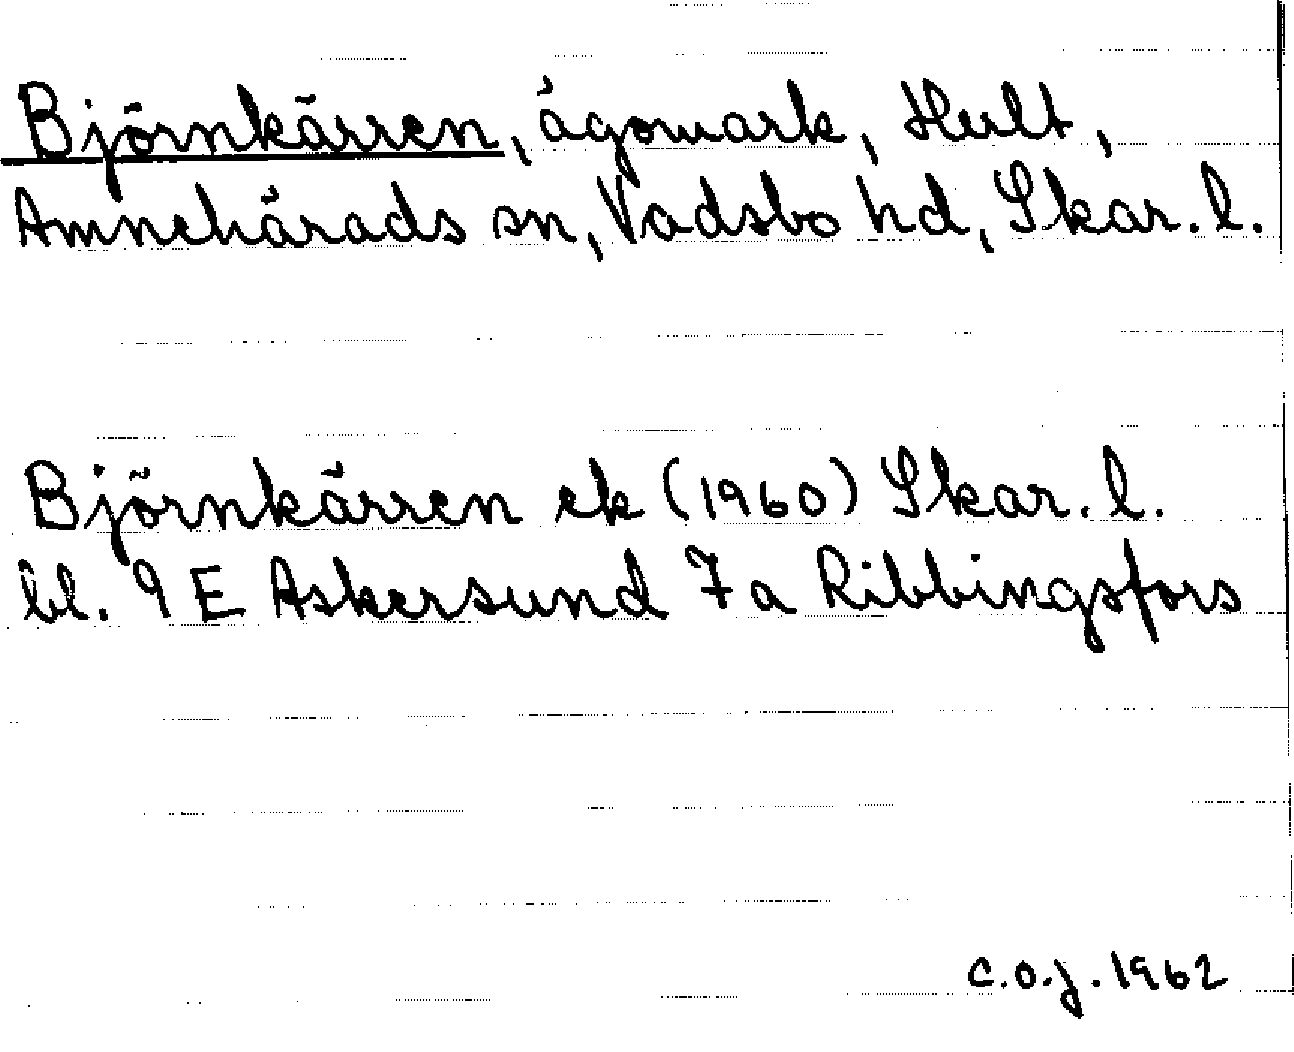 Björnkärren, ägomark, Hult,
Amnehärads sn, Vadsbo hd, Skar. l.
Björnkärren ek (1960) Skar. l.
bl. 9 E Askersund 7 a Ribbingsfors
C.O.J. 1962